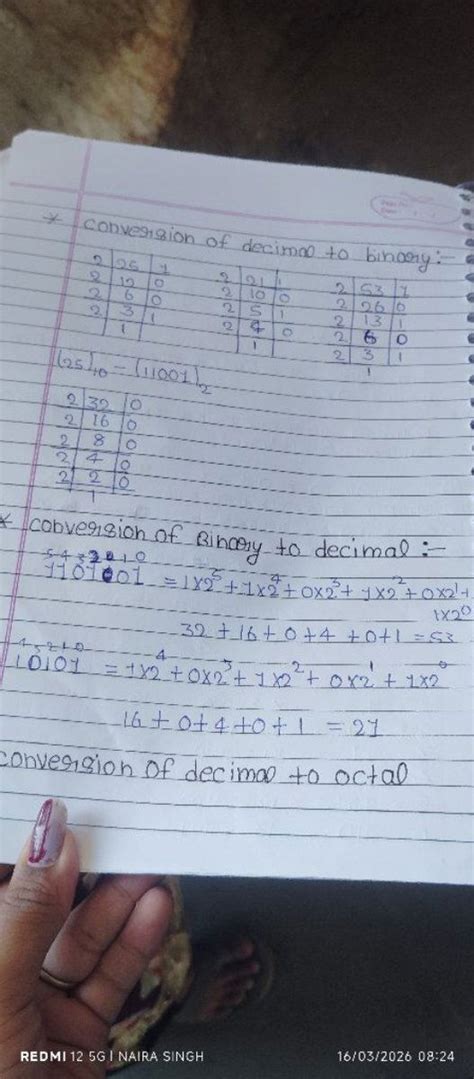 * Conversion of decimal to binary :-
2 25 1
2 12 0
2 6 0
2 3 1
1
2 21 1
2 10 0
2 5 1
2 4 0
1
2 53 1
2 26 0
2 13 1
2 6 0
2 3 1
1
(25)10 - (11001)2
2 32 0
2 16 0
2 8 0
2 4 0
2 2 0
1
* Conversion of Binary to decimal :-
5 4 3 2 0 1 0
1101001 = 1x2^5 + 1x2^4 + 0x2^3 + 1x2^2 + 0x2^1 +
1x2^0
32 + 16 + 0 + 4 + 0 + 1 = 53
4 3 2 1 0
10101 = 1x2^4 + 0x2^3 + 1x2^2 + 0x2^1 + 1x2^0
16 + 0 + 4 + 0 + 1 = 21
Conversion of decimal to octal
REDMI 12 5G | NAIRA SINGH
16/03/2026 08:24